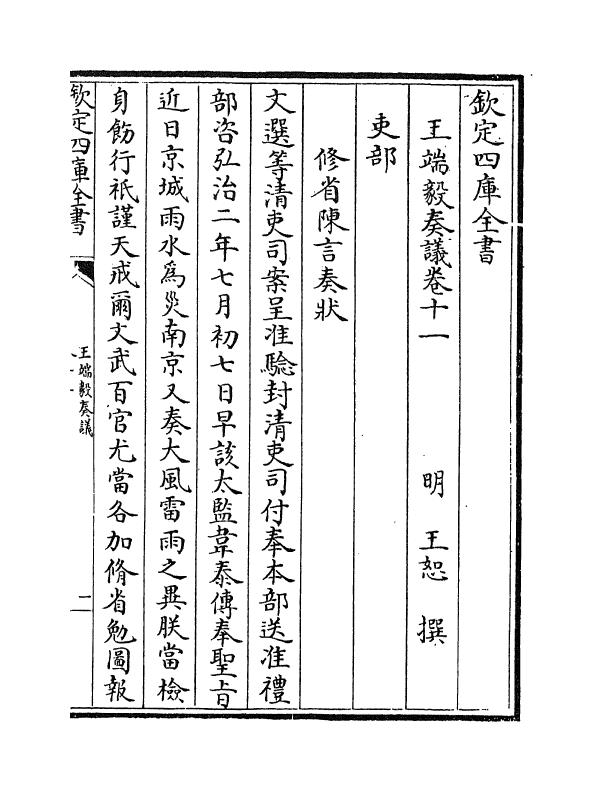 欽定四庫全書
王端毅奏議卷十一　明　王恕　撰
吏部
修省陳言奏狀
文選等清吏司案呈准驗封清吏司付奉本部送准禮
部咨弘治二年七月初七日早該太監韋泰傳奉聖旨
近日京城雨水爲災南京又奏大風雷雨之異朕當檢
身飭行祇謹天戒爾文武百官尤當各加脩省勉圖報
欽定四庫全書
王端毅奏議
二